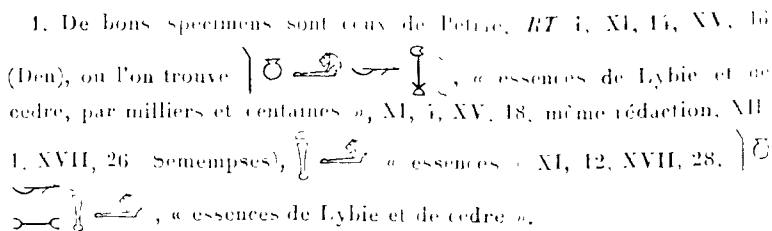 1. De bons specimens sont ceux de Petrie. RT i, XI, 14, XV, 16
(Den), ou l'on trouve , « essences de Lybie et de
cedre, par milliers et centaines », XI, i, XV, 18, même rédaction. XII
1, XVII, 26 Semempses), « essences » XI, 12, XVII, 28.
, « essences de Lybie et de cedre ».